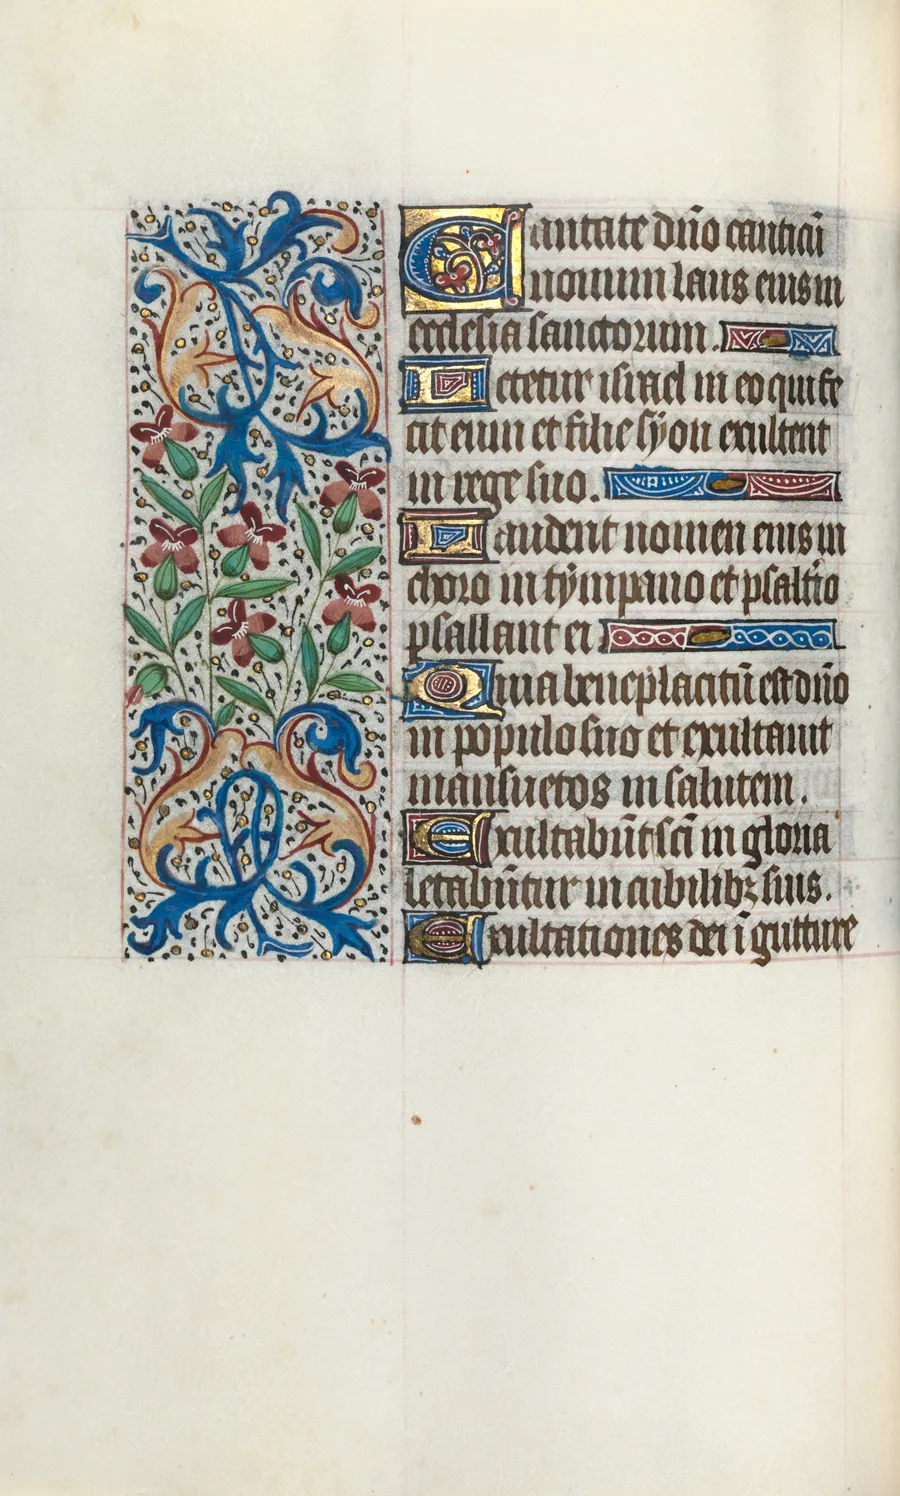 Cantate dño canticũ
nouum laus eius in
ecclesia sanctorum.
Letetur israel in eo qui fe
cit eum et filie syon exultent
in rege suo.
Laudent nomen eius in
choro in tympano et psaltio
psallant ei
Quia beneplacitũ est dño
in populo suo et exultauit
mansuetos in salutem.
Exultabũt sci in gloria
letabũtur in cubilibꝫ suis.
Exultationes dei ĩ gutture